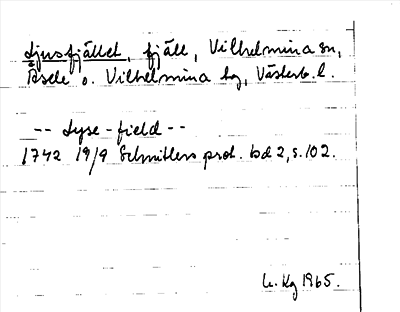 Ljusfjället, fjäll, Vilhelmina sn,
Åsele o. Vilhelmina tg, Västerb. l.
-- Lyse-field --
1742 19/9 Schnitlers prot. bd 2, s. 102.
Kg 1965.